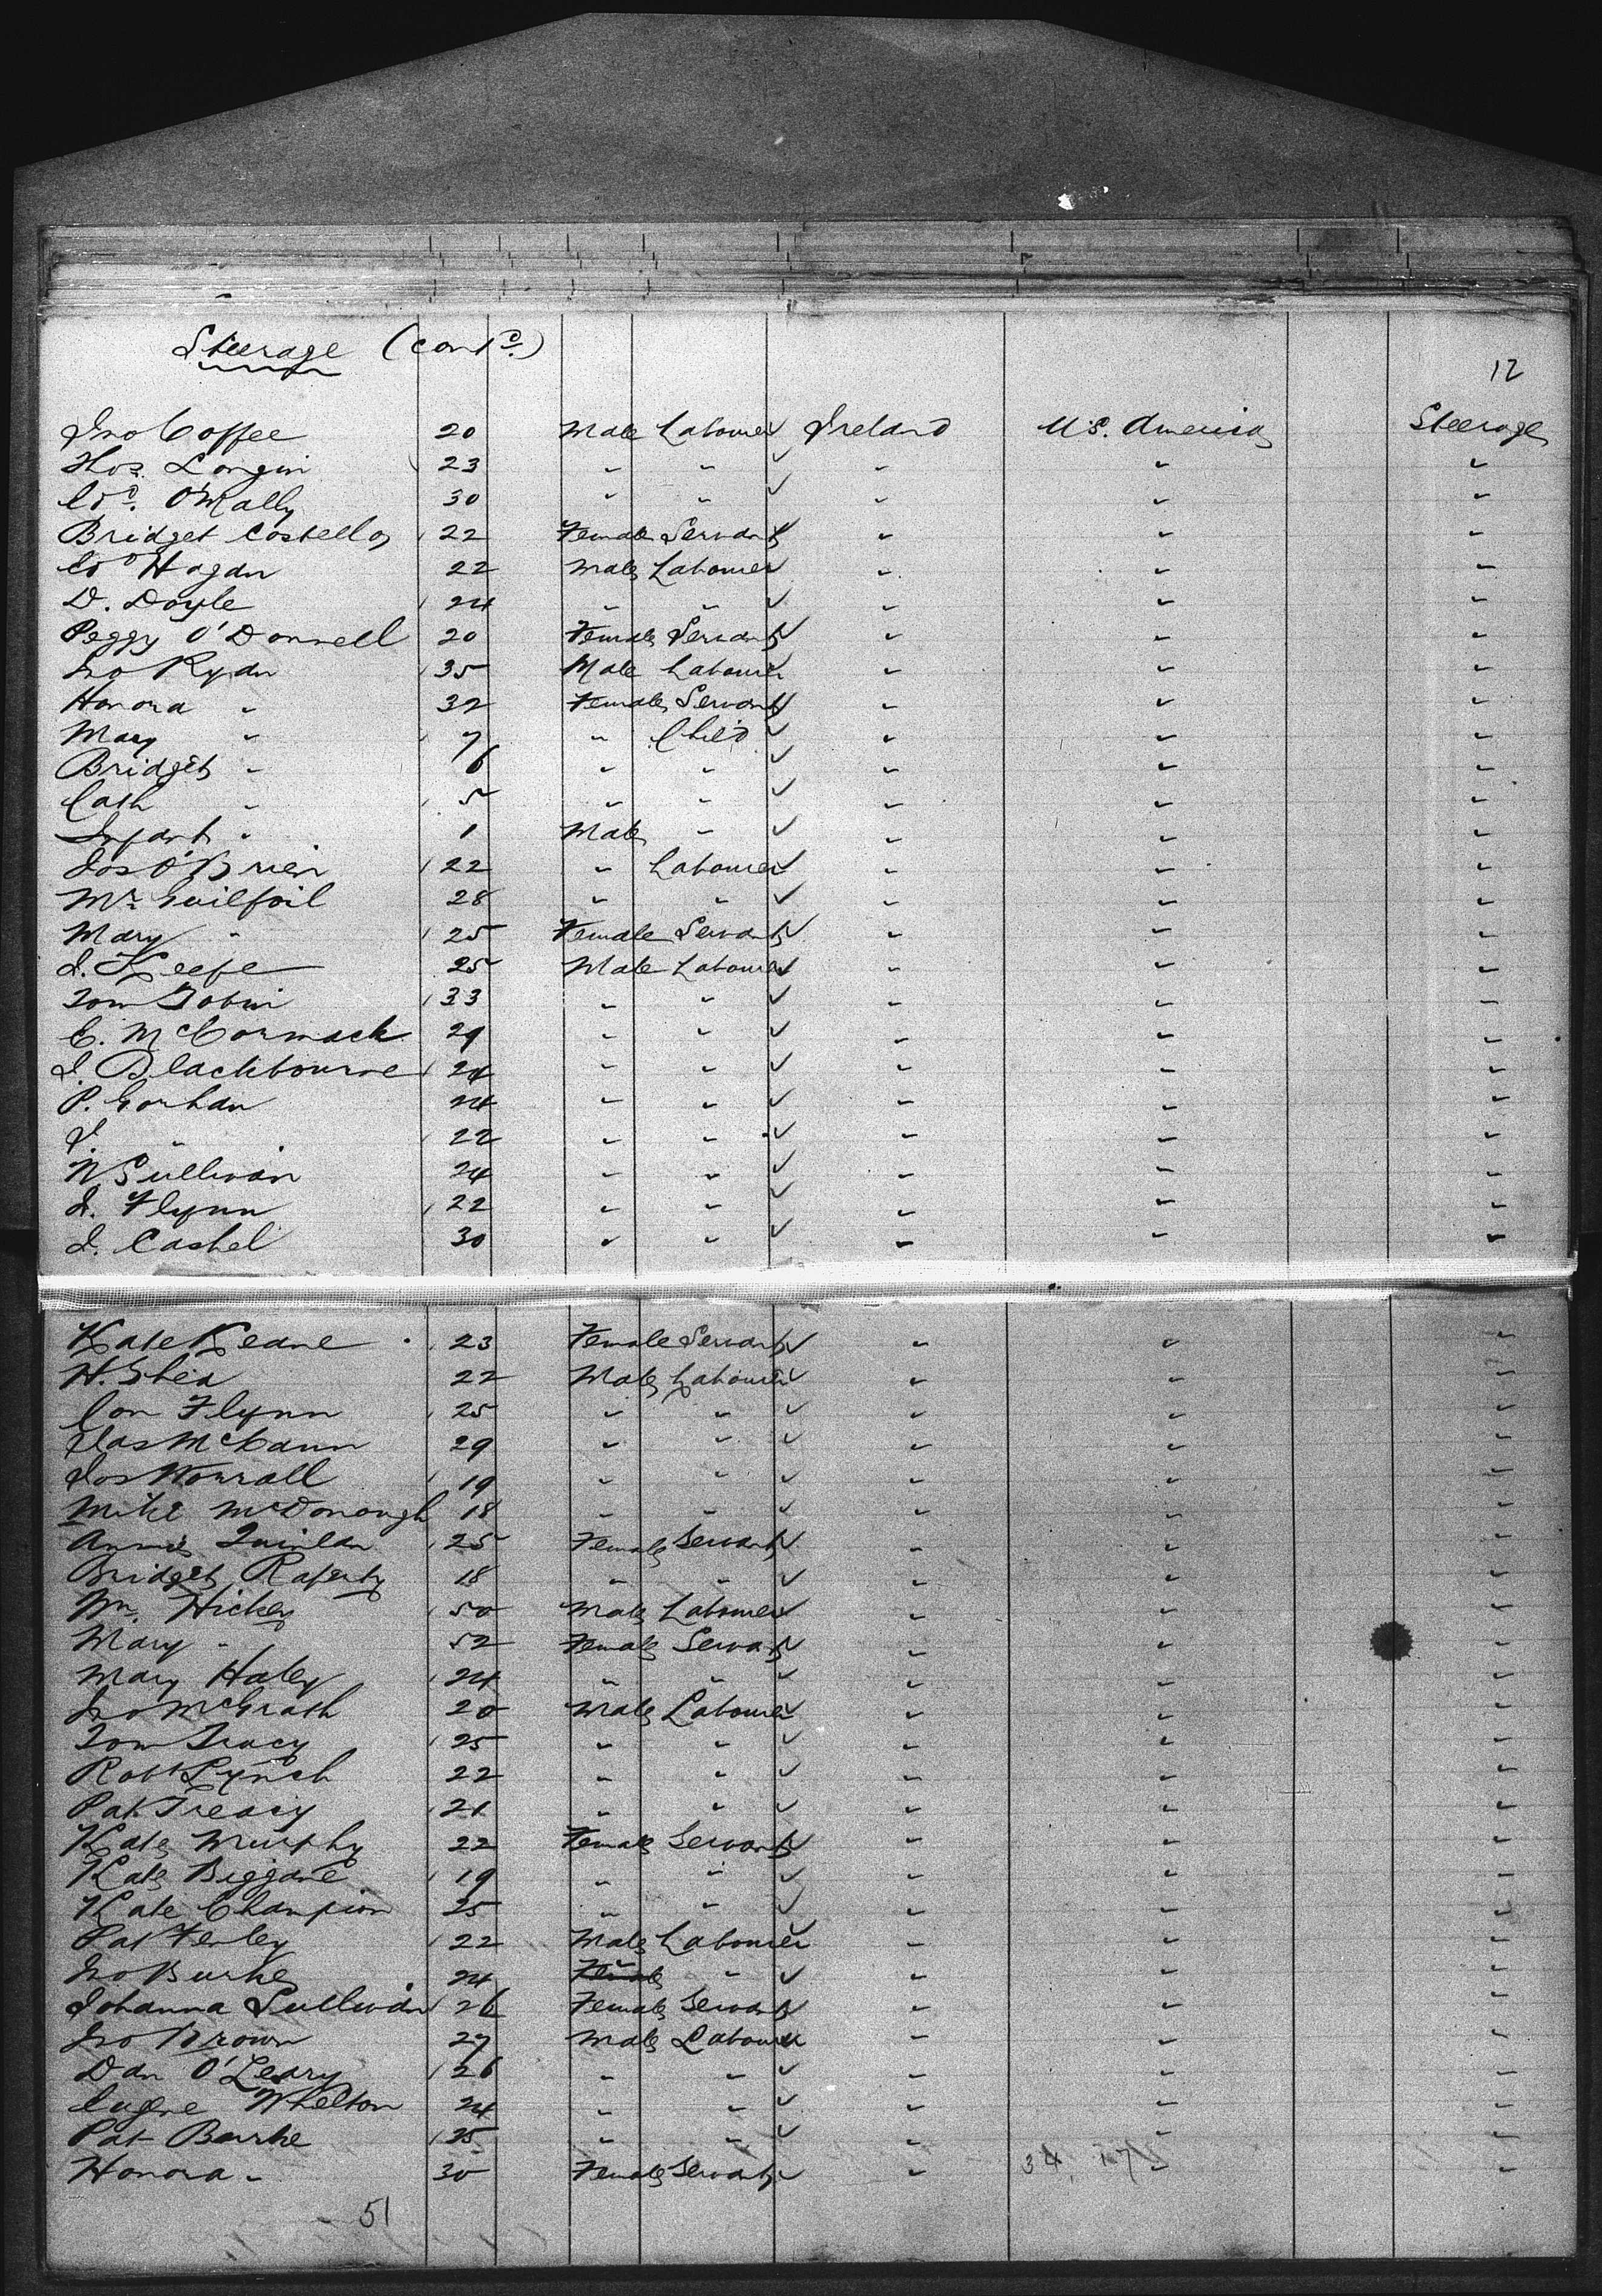 Steerage (contd.)
12
Jno Coffee 20 Male Labourer ✓ Ireland U.S. America Steerage
Thos. Longin 23 " " ✓ " " "
Ed. O'Mally 30 " " ✓ " " "
Bridget Costello 22 Female Servant ✓ " " "
Ed Hogan 22 Male Labourer ✓ " " "
D. Doyle 24 " " ✓ " " "
Peggy O'Donnell 20 Female Servant ✓ " " "
Jno Ryan 35 Male Labourer ✓ " " "
Honora " 32 Female Servant ✓ " " "
Mary " 7 " Child ✓ " " "
Bridget " 6 " " ✓ " " "
Cath " 5 " " ✓ " " "
Infant " 1 Male " ✓ " " "
Jas O'Brien 22 " Labourer ✓ " " "
Mr. Guilfoil 28 " " ✓ " " "
Mary " 25 Female Servant ✓ " " "
J. Keefe 25 Male Labourer ✓ " " "
Tom Tobin 33 " " ✓ " " "
C. McCormack 29 " " ✓ " " "
J. Blackbourne 24 " " ✓ " " "
P. Gorhan 24 " " ✓ " " "
J. " 22 " " ✓ " " "
N Sullivan 24 " " ✓ " " "
J. Flynn 22 " " ✓ " " "
J. Cashel 30 " " ✓ " " "
Kate Keane 23 Female Servant ✓ " " "
H. Shea 22 Male Labourer ✓ " " "
Con Flynn 25 " " ✓ " " "
Jas McCann 29 " " ✓ " " "
Jos Worrall 19 " " ✓ " " "
Mike McDonough 18 " " ✓ " " "
Annie Quinlan 25 Female Servant ✓ " " "
Bridget Raferty 18 " " ✓ " " "
Wm. Hickey 50 Male Labourer ✓ " " "
Mary " 52 Female Servant ✓ " " "
Mary Haley 24 " " ✓ " " "
Jno McGrath 20 Male Labourer ✓ " " "
Tom Tracy 25 " " ✓ " " "
Robt Lynch 22 " " ✓ " " "
Pat Treacy 21 " " ✓ " " "
Kate Murphy 22 Female Servant ✓ " " "
Kate Biggane 19 " " ✓ " " "
Kate Champion 25 " " ✓ " " "
Pat Ferley 22 Male Labourer ✓ " " "
Jno Burke 24 Female " ✓ " " "
Johanna Sullivan 26 Female Servant ✓ " " "
Jno Brown 27 Male Labourer ✓ " " "
Dan O'Leary 26 " " ✓ " " "
Eugene Whelton 24 " " ✓ " " "
Pat Burke 35 " " ✓ " " "
Honora " 30 Female Servant ✓ " 34, 17 " "
51